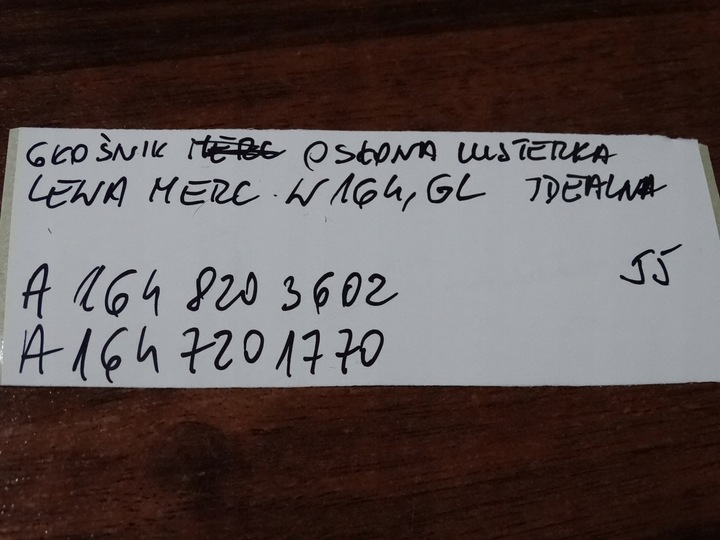 GŁOŚNIK OSŁONA LUSTERKA
LEWA MERC. W164, GL IDEALNA
55
A 164 820 3602
A 164 720 1770